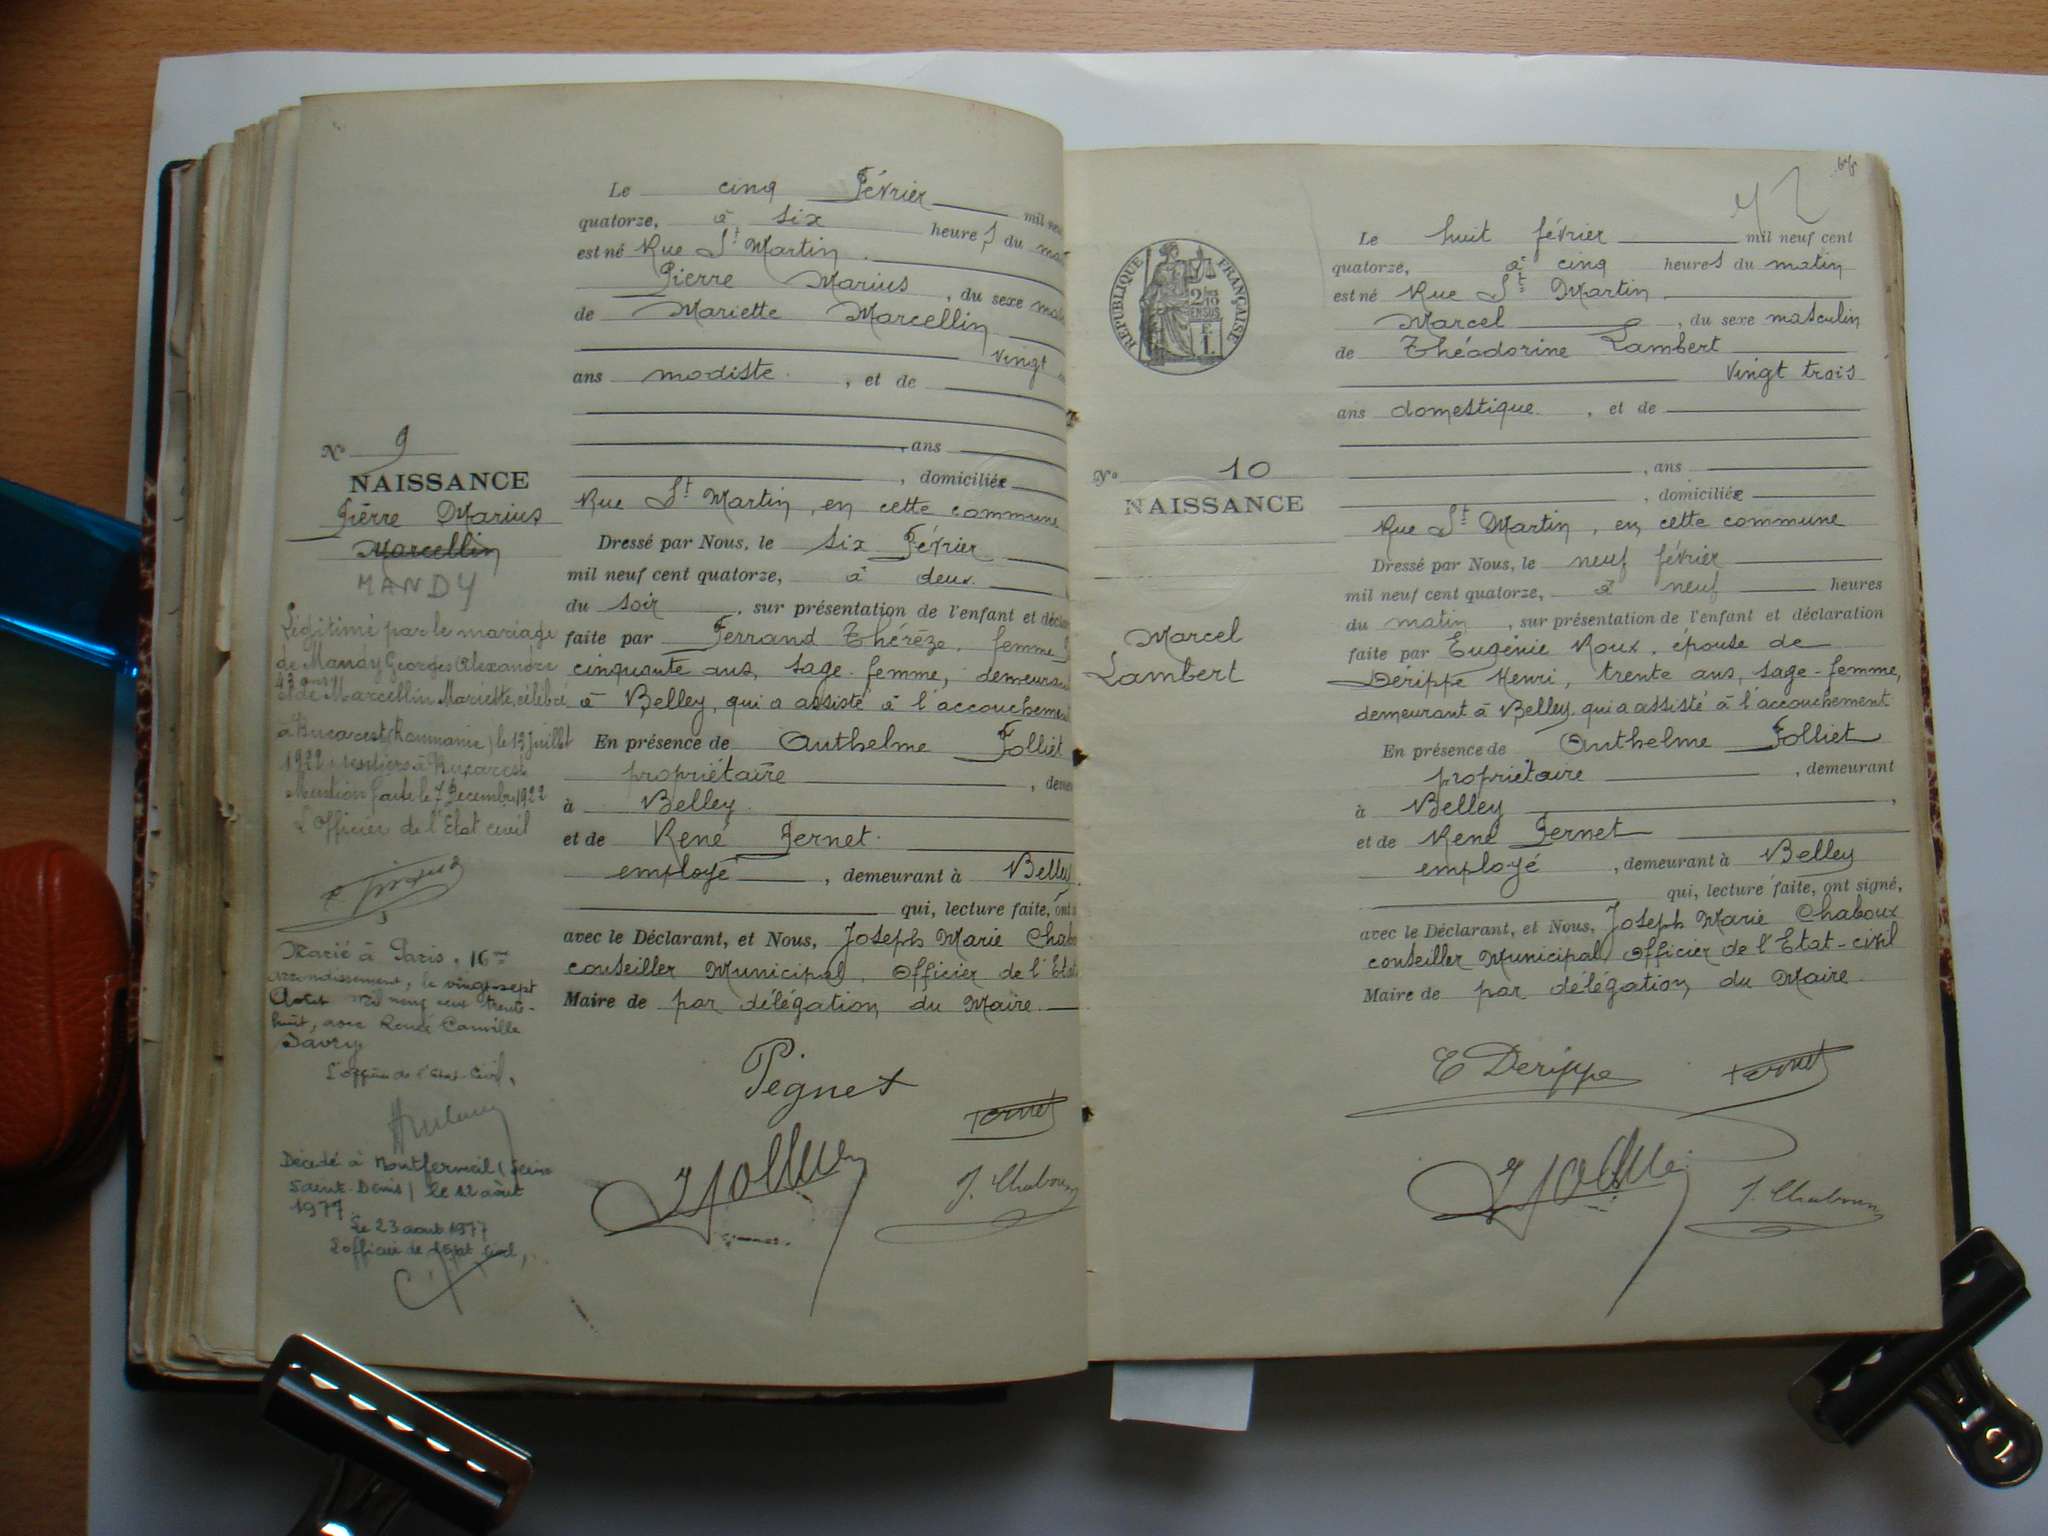 Le cinq Février mil neu
quatorze, à six heures du mat
est né Rue St Martin
Pierre Marius, du sexe mas
de Mariette Marcellin
vingt
ans modiste, et de
, ans
, domiciliée
Rue St Martin, en cette commune
Dressé par Nous, le six Février
mil neuf cent quatorze, à deux
du soir, sur présentation de l'enfant et décla
faite par Ferrand Thérèze, femme
cinquante ans, sage-femme, demeurant
à Belley, qui a assisté à l'accouchement
En présence de Anthelme Folliet
propriétaire, deme
à Belley
et de René Pernet
employé, demeurant à Belley
qui, lecture faite, ont
avec le Déclarant, et Nous, Joseph Marie Chabo
conseiller Municipal, Officier de l'Etat
Maire de par délégation du Maire
Pegnet
Pernet
J. Chaboux
No 9
NAISSANCE
Pierre Marius
Marcellin
MANDY
Légitimé par le mariage
de Mandy Georges Alexandre
43 ans
et de Marcellin Mariette, célébré
à Bucarest (Roumanie) le 13 Juillet
1922 à Bucarest
Mention faite le 7 Décembre 1922
L'Officier de l'Etat civil
Marié à Paris, 16me
arrondissement, le vingt-sept
Août mil neuf cent trente-
huit, avec Renée Camille
Davry
L'officier de l'Etat-Civil,
Décédé à Montfermeil (Seine
Saint-Denis) le 12 août
1977
Le 23 août 1977
L'officier de l'Etat Civil,
72
REPUBLIQUE FRANÇAISE
2/10
EN SUS
No 10
NAISSANCE
Marcel
Lambert
Le huit février mil neuf cent
quatorze, à cinq heures du matin
est né Rue St Martin
Marcel, du sexe masculin
de Théadorine Lambert
vingt trois
ans domestique, et de
, ans
, domiciliée
Rue St Martin, en cette commune
Dressé par Nous, le neuf février
mil neuf cent quatorze, à neuf heures
du matin, sur présentation de l'enfant et déclaration
faite par Eugénie Roux, épouse de
Dérippe Henri, trente ans, sage-femme,
demeurant à Belley, qui a assisté à l'accouchement
En présence de Anthelme Folliet
propriétaire, demeurant
à Belley,
et de René Pernet
employé, demeurant à Belley
qui, lecture faite, ont signé,
avec le Déclarant, et Nous, Joseph Marie Chaboux
conseiller Municipal Officier de l'Etat-civil
Maire de par délégation du Maire
E Derippe
Pernet
J. Chaboux